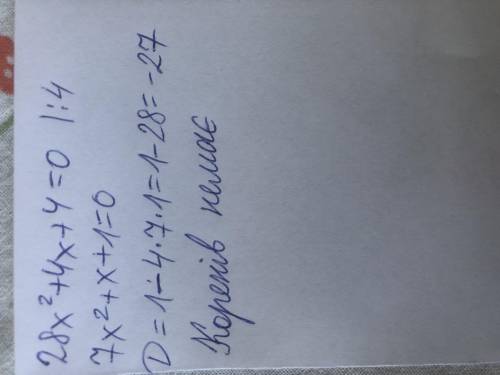 28x²+4x+4=0 |:4
7x²+x+1=0
D=1-4·7·1=1-28=-27
Коренів немає